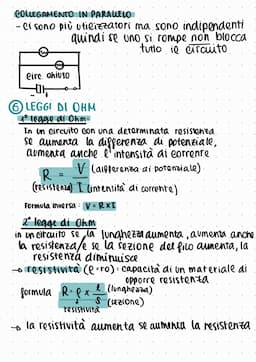 COLLEGAMENTO IN PARALLELO
- ci sono più utilizzatori ma sono indipendenti
quindi se uno si rompe non blocca
tutto il circuito
circ. chiuso
⑥ LEGGI DI OHM
1° legge di Ohm
In un circuito con una determinata resistenza
se aumenta la differenza di potenziale,
aumenta anche l'intensità di corrente
R = V (differenza di potenziale)
(resistenza) I (intensità di corrente)
Formula inversa: V = R × I
2° legge di Ohm
in un circuito se la lunghezza aumenta, aumenta anche
la resistenza/e se la sezione del filo aumenta, la
resistenza diminuisce
→ resistività (ρ=ro): capacità di un materiale di
opporre resistenza
formula R = ρ × l (lunghezza)
S (sezione)
resistività
→ la resistività aumenta se aumenta la resistenza